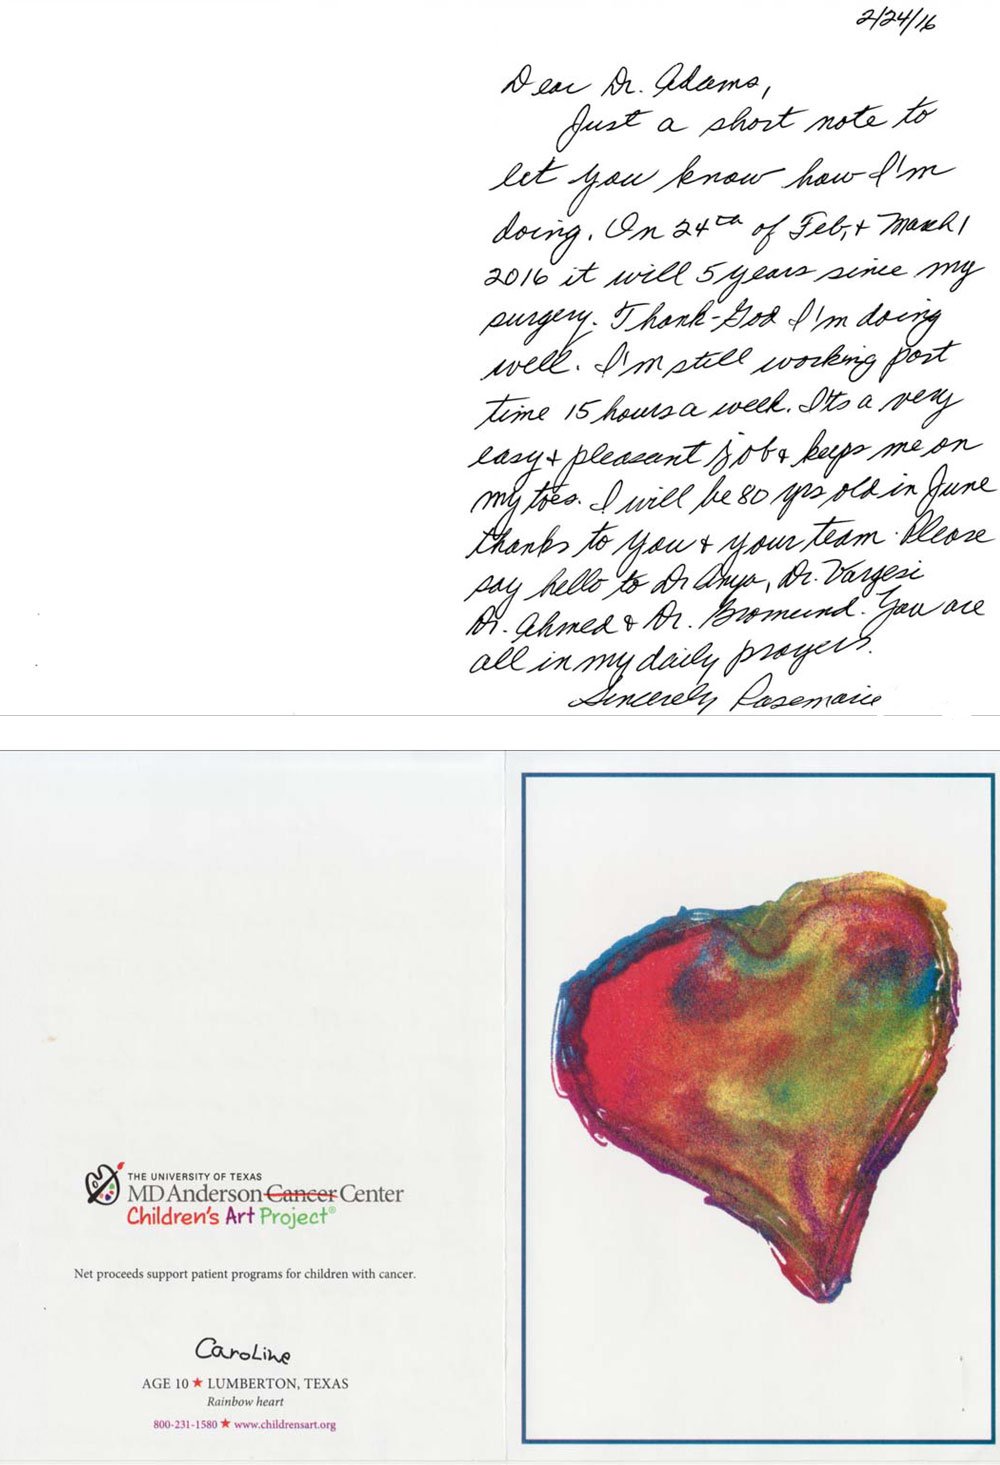 2/24/16
Dear Dr. Adams,
Just a short note to
let you know how I'm
doing. On 24th of Feb, + March 1
2016 it will 5 years since my
surgery. Thank-God I'm doing
well. I'm still working part
time 15 hours a week. Its a very
easy + pleasant job & keeps me on
my toes. I will be 80 yrs old in June
thanks to you + your team. Please
say hello to Dr Anya, Dr. Vargesi
Dr. Ahmed & Dr. Bromund. You are
all in my daily prayers.
Sincerely Rosemarie
THE UNIVERSITY OF TEXAS
MD Anderson Cancer Center
Children's Art Project®
Net proceeds support patient programs for children with cancer.
Caroline
AGE 10 ★ LUMBERTON, TEXAS
Rainbow heart
800-231-1580 ★ www.childrensart.org